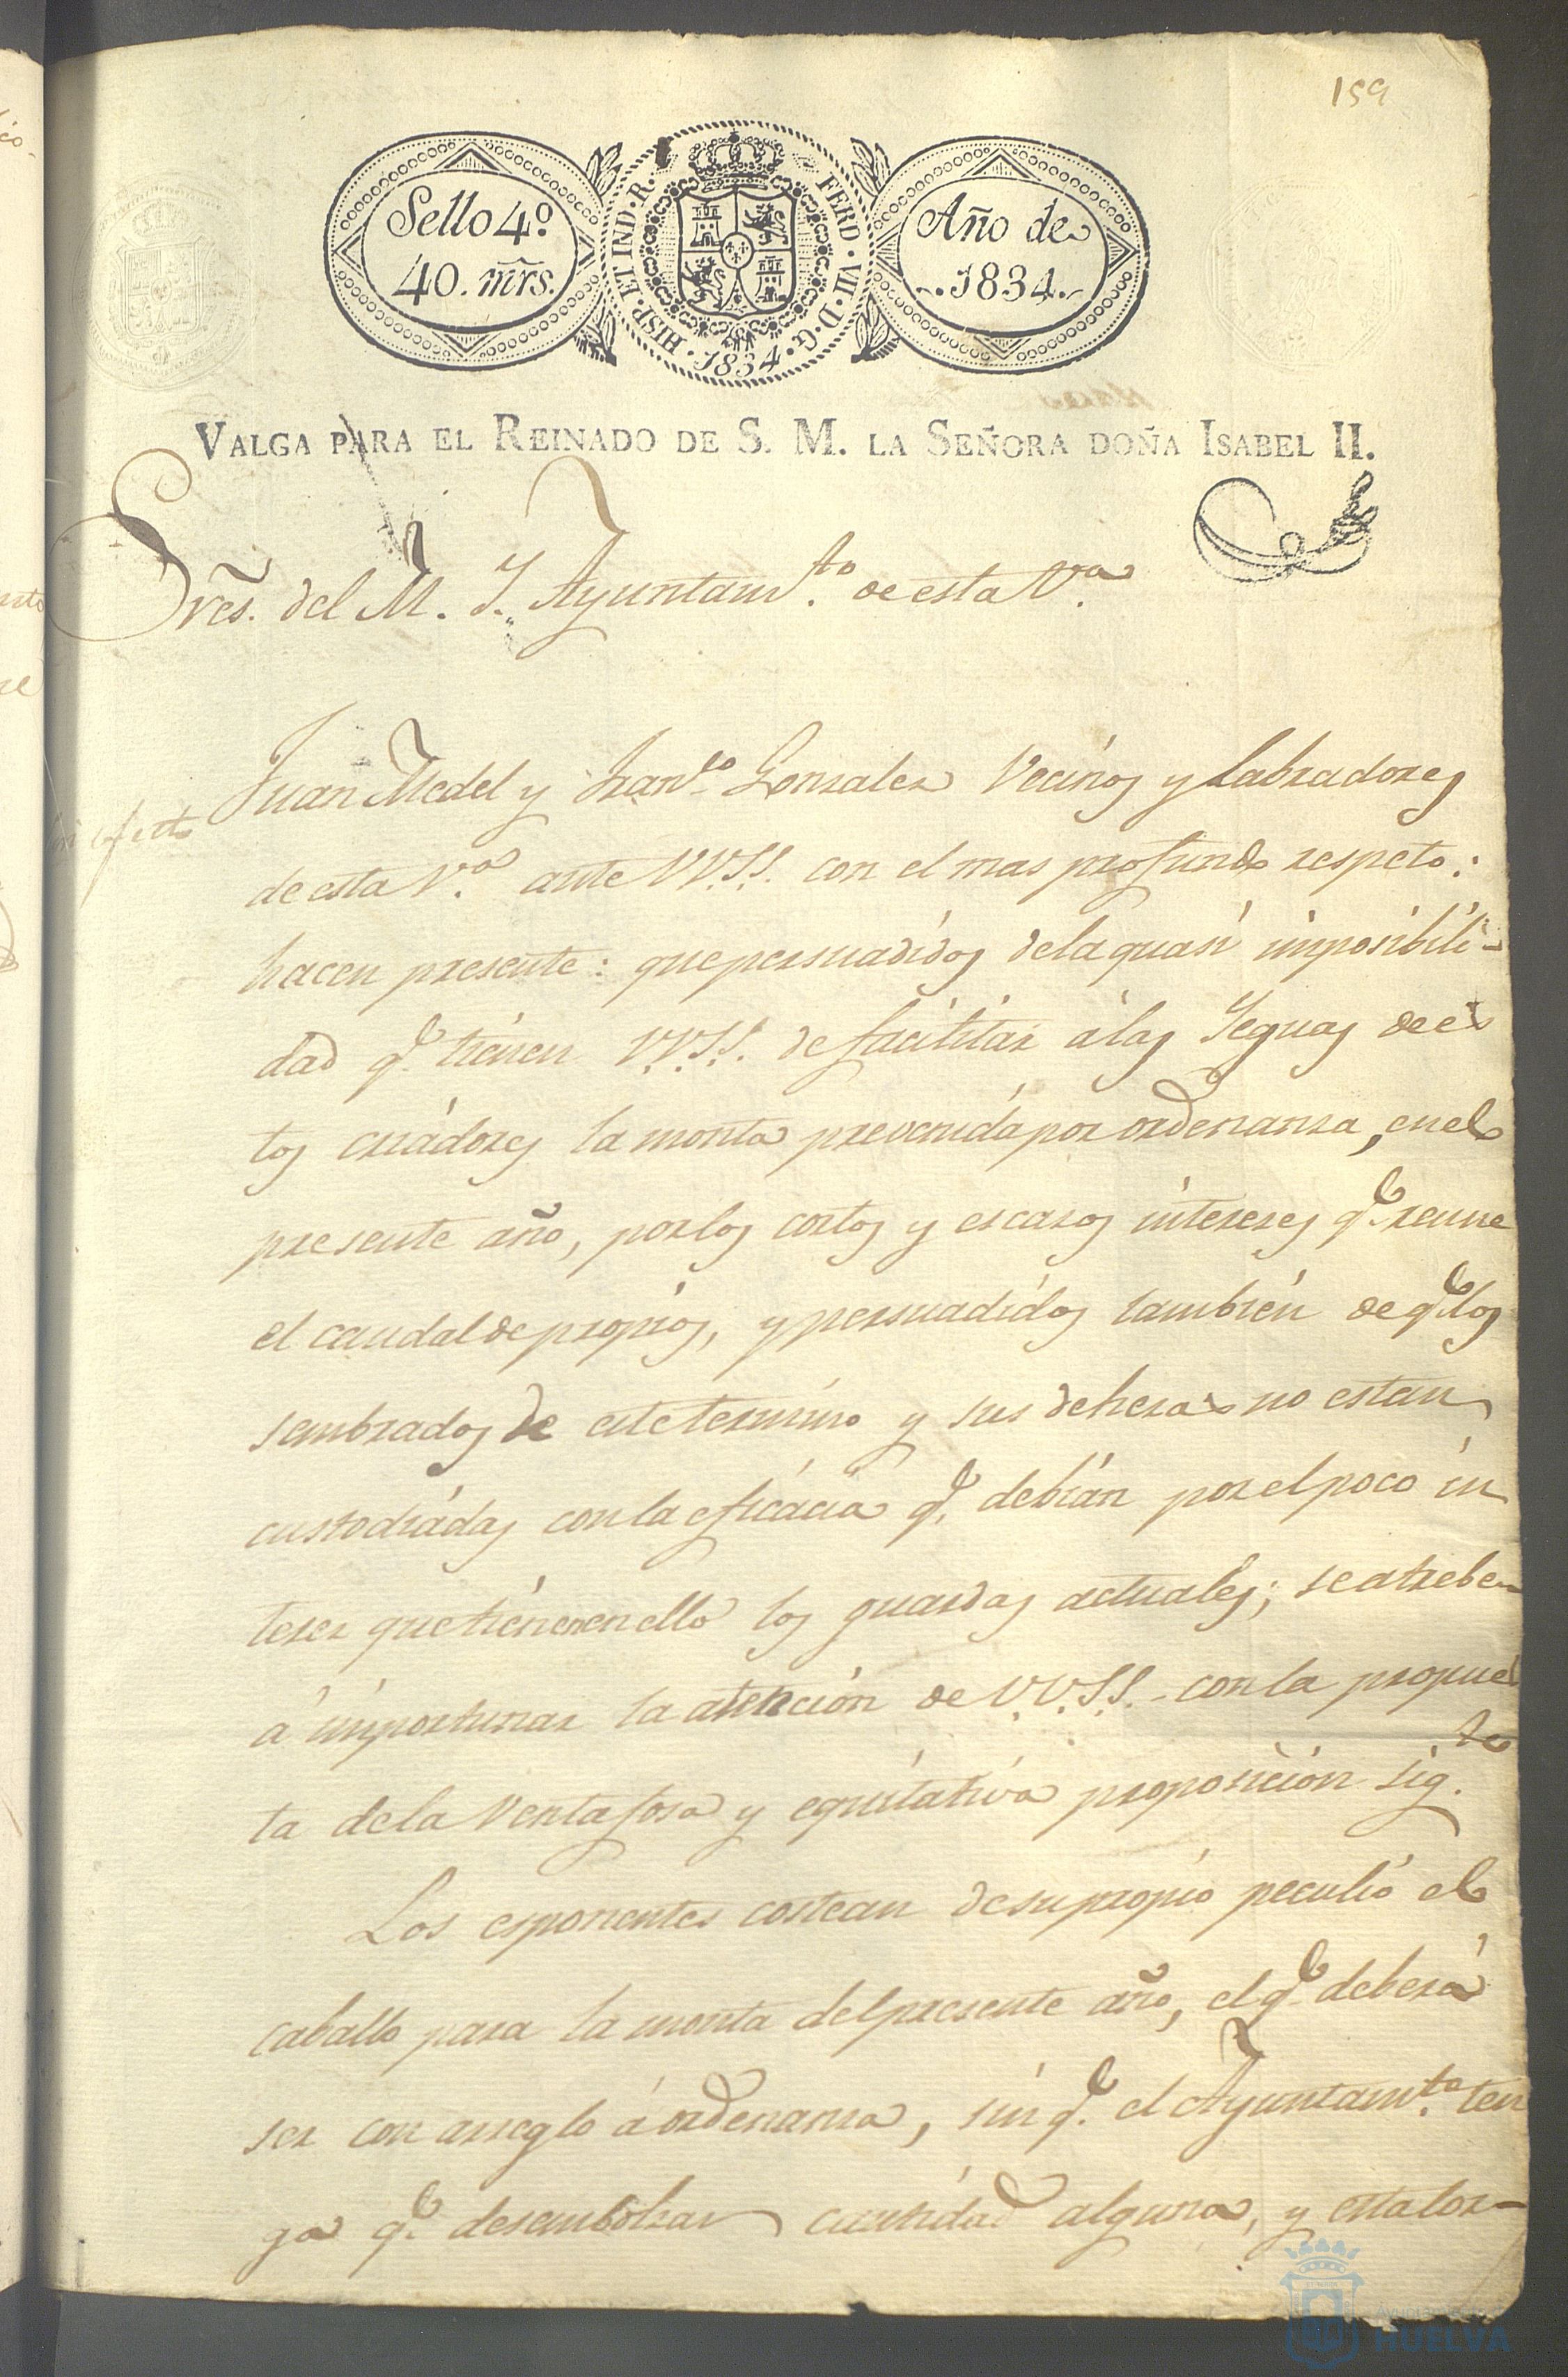 159
Sello 4º
40. mrs.
HISP. ET IND. R.
FERD. VII. D. G.
1834.
Año de
1834.
VALGA PARA EL REINADO DE S. M. LA SEÑORA DOÑA ISABEL II.
Sres. del M. Y. Ayuntamto. de esta Va.
Juan Medel y Franco. Gonzalez Vecinos y Labradores
de esta Va. ante VV.SS. con el mas profundo respeto:
hacen presente: que persuadidos de la quasi imposibili-
dad q.e tienen V.V.S.S. de facilitar á las Yeguas de es
tos criadores la monta prevenida por ordenanza, en el
presente año, por los cortos y escasos intereses q.e reune
el caudal de propios, y persuadidos tambien de q.e los
sembrados de este termino y sus dehezas no estan
custodiadas con la eficacia q.e debian por el poco in
teres que tienen en ello los guardas actuales; se atreben
á importunar la atencion de V.V.S.S. con la propues
ta de la Ventajosa y equitativa proposicion sig.te
Los esponentes costean de su propio peculio el
caballo para la monta del presente año, el q.e deberá
ser con arreglo á ordenanza, sin q.e el Ayuntamto. ten
ga q.e desembolzar cantidad alguna, y esta lor-
HUELVA